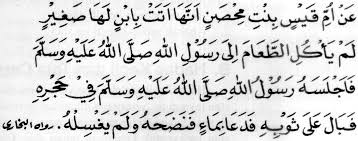 عَنْ أُمِّ قَيْسٍ بِنْتِ مِحْصَنٍ أَنَّهَا أَتَتْ بِابْنٍ لَهَا صَغِيْرٍ
لَمْ يَأْكُلِ الطَّعَامَ اِلَى رَسُوْلِ اللهِ صَلَّى اللهُ عَلَيْهِ وَسَلَّمَ
فَاَجْلَسَهُ رَسُوْلُ اللهِ صَلَّى اللهُ عَلَيْهِ وَسَلَّمَ فِيْ حَجْرِهِ
فَبَالَ عَلَى ثَوْبِهِ فَدَعَا بِمَاءٍ فَنَضَحَهُ وَلَمْ يَغْسِلْهُ. رواه البخارى